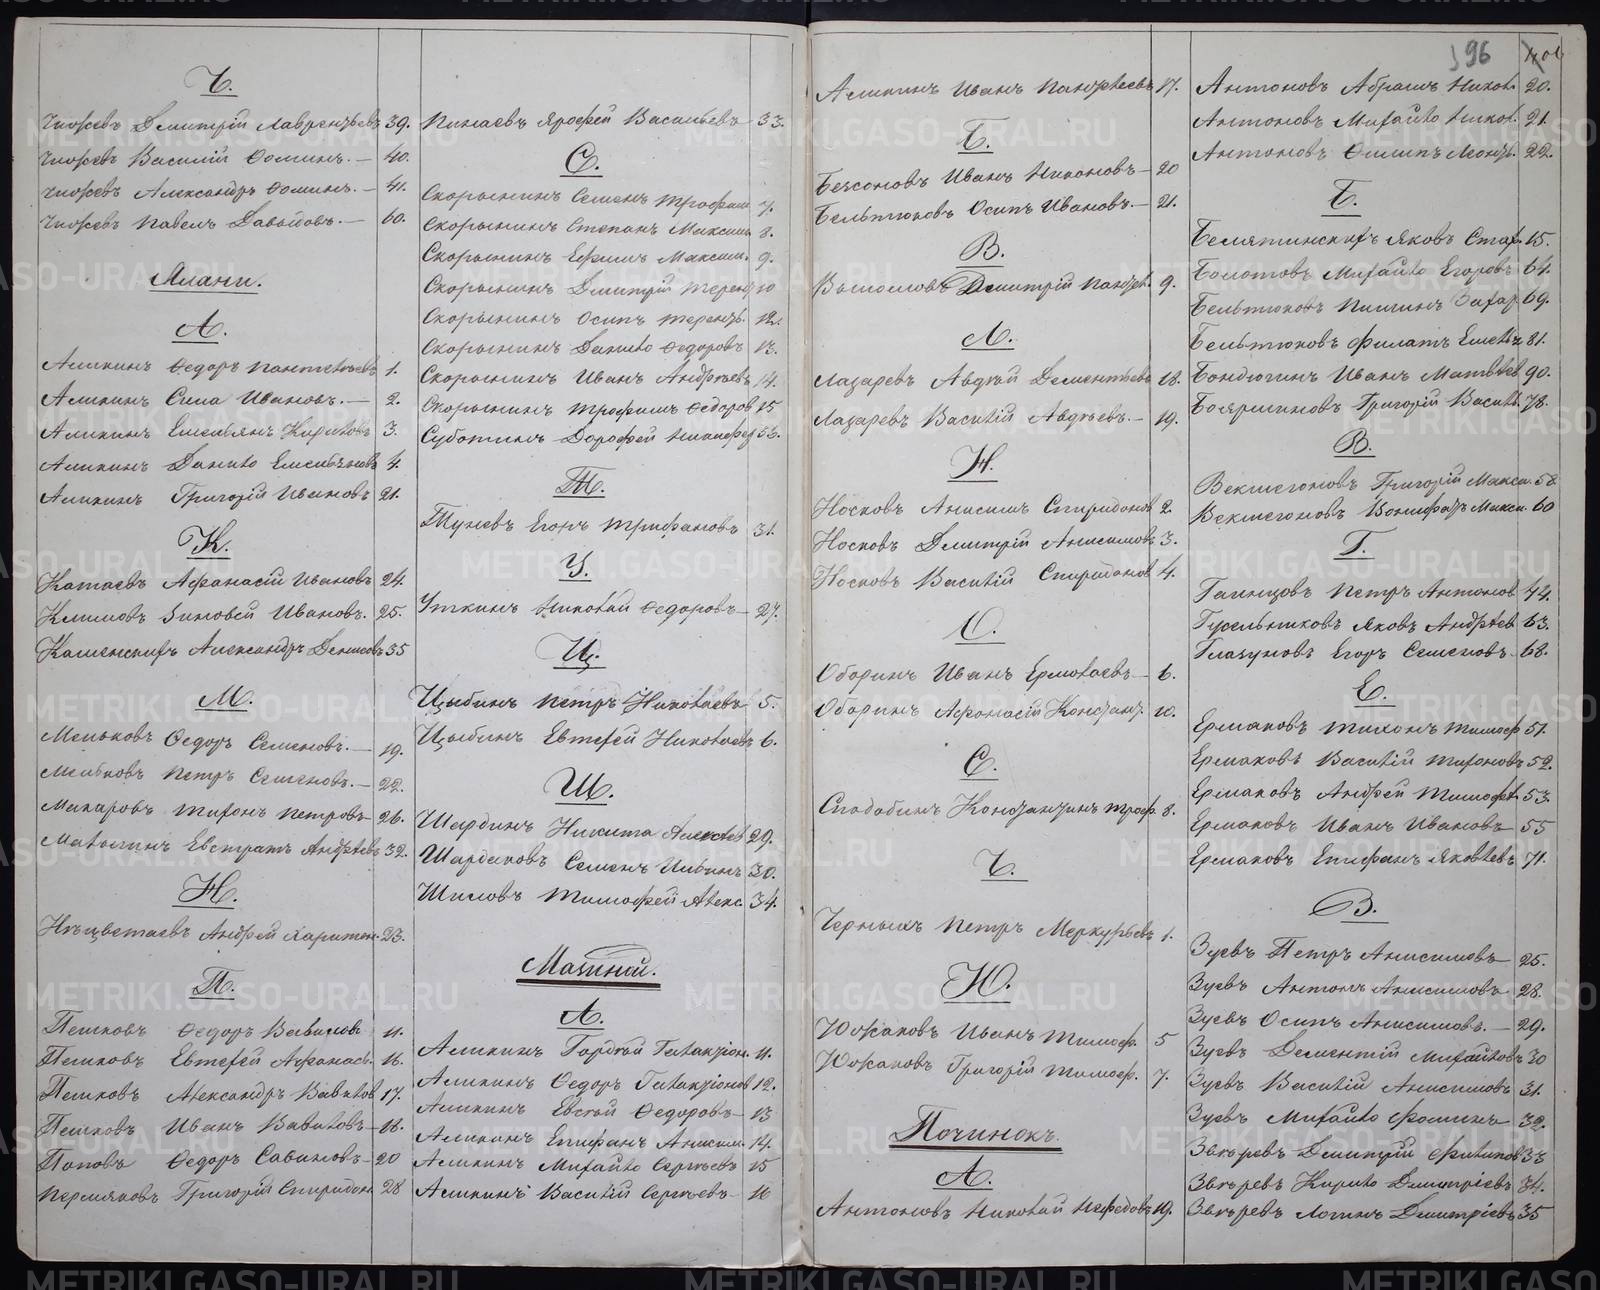 Ч.
Чюжевъ Дмитрій Лаврентьевъ 39.
Чюжевъ Василій Ѳоминъ.— 40.
Чюжевъ Александръ Ѳоминъ.— 41.
Чюжевъ Павелъ Давыдовъ.— 60.
Алани.
А.
Аликинъ Ѳедоръ Пантелѣевъ 1.
Аликинъ Сила Ивановъ.— 2.
Аликинъ Емельянъ Кириловъ 3.
Аликинъ Данило Емельяновъ 4.
Аликинъ Григорій Ивановъ 21.
К.
Катаевъ Афанасій Ивановъ 24.
Климовъ Зиновей Ивановъ. 25.
Каменскихъ Александръ Денисовъ 35
М.
Меньковъ Ѳедоръ Семеновъ.— 19.
Меньковъ Петръ Семеновъ.— 22.
Макаровъ Тихонъ Петровъ— 26.
Малыгинъ Евстратъ Андрѣевъ 32.
Н.
Нѣцветаевъ Андрей Харитон. 23.
П.
Пешковъ Ѳедоръ Вавиловъ 11.
Пешковъ Евтефей Афанась. 16.
Пешковъ Александръ Вавиловъ 17.
Пешковъ Иванъ Вавиловъ— 18.
Поповъ Ѳедоръ Савиновъ— 20
Пермяковъ Григорій Спиридон. 28
Пинаевъ Ярофей Васильевъ— 33.
С.
Скорынинъ Семенъ Трофим. 7.
Скорынинъ Степанъ Максим. 8.
Скорынинъ Ефимъ Максим. 9.
Скорынинъ Дмитрій Терент. 10
Скорынинъ Осипъ Терентъ. 12.
Скорынинъ Данило Ѳедоровъ 13.
Скорынинъ Иванъ Андрѣевъ 14.
Скорынинъ Трофимъ Ѳедоров 15
Суботинъ Дорофей Никифор. 53.
Т.
Туневъ Егоръ Трифановъ 31.
У.
Уткинъ Николай Ѳедоровъ— 27.
Ц.
Цыбинъ Петръ Николаевъ 5.
Цыбинъ Евтефей Николаевъ 6.
Ш.
Шардинъ Никита Алексѣев 29.
Шардаковъ Семенъ Ильинъ 30.
Шиловъ Тимофей Алекс. 34.
Мазиной.
А.
Аликинъ Гордѣй Галактіон. 11.
Аликинъ Ѳедоръ Галактіонов 12.
Аликинъ Евсѣй Ѳедоровъ— 13
Аликинъ Епифанъ Анисим. 14.
Аликинъ Михайло Сергѣевъ 15
Аликинъ Василій Сергѣевъ— 16
96
Аликинъ Иванъ Панфілевъ 17.
Б.
Безсоновъ Иванъ Никоновъ— 20
Бельтюковъ Осипъ Ивановъ.— 21.
В.
Вылomовъ Дмитрій Панфил. 9.
Л.
Лазаревъ Авдѣй Дементьевъ 18.
Лазаревъ Василій Авдѣевъ.— 19.
Н.
Носковъ Анисимъ Спиридонов 2.
Носковъ Дмитрій Анисимовъ 3.
Носковъ Василій Спиридонов 4.
О.
Оборинъ Иванъ Ермолаевъ— 6.
Оборинъ Афонасій Констант. 10.
С.
Сладабинъ Константинъ Троф. 8.
Ч.
Черныхъ Петръ Меркурьевъ 1.
Ю.
Южаковъ Иванъ Тимоф. 5
Южаковъ Григорій Тимоф. 7.
Починокъ.
А.
Антоновъ Николай Нефедовъ 19.
Антоновъ Абрамъ Никол. 20.
Антоновъ Михайло Никол. 21.
Антоновъ Филипъ Леонть. 22.
Б.
Белятинскихъ Яковъ Стаф. 15.
Болотовъ Михайло Егоровъ 64.
Бельтюковъ Пиминъ Захар. 69.
Бельтюковъ Филатъ Емель. 81.
Бондюгинъ Иванъ Матвѣев 90.
Бояршиновъ Григорій Василь. 78.
В.
Векшегоновъ Григорій Макси. 58
Векшегоновъ Бонифатъ Макси. 60
Г.
Галицовъ Петръ Антонов 44.
Гусельниковъ Яковъ Андрѣев 63.
Глазуновъ Егоръ Семеновъ— 68.
Е.
Ермаковъ Тихонъ Тимоф. 51.
Ермаковъ Василій Тихоновъ 52.
Ермаковъ Андрей Тимофѣев. 53.
Ермаковъ Иванъ Ивановъ— 55
Ермаковъ Епифанъ Яковлевъ 71.
З.
Зуевъ Петръ Анисимовъ— 25.
Зуевъ Антонъ Анисимовъ— 28.
Зуевъ Осипъ Анисимовъ.— 29.
Зуевъ Дементій Михайловъ 30
Зуевъ Василій Анисимовъ 31.
Зуевъ Михайло Фоминъ— 32.
Звѣревъ Дмитрій Филипов 33
Звѣревъ Кирило Дмитріевъ 34.
Звѣревъ Логинъ Дмитріевъ 35